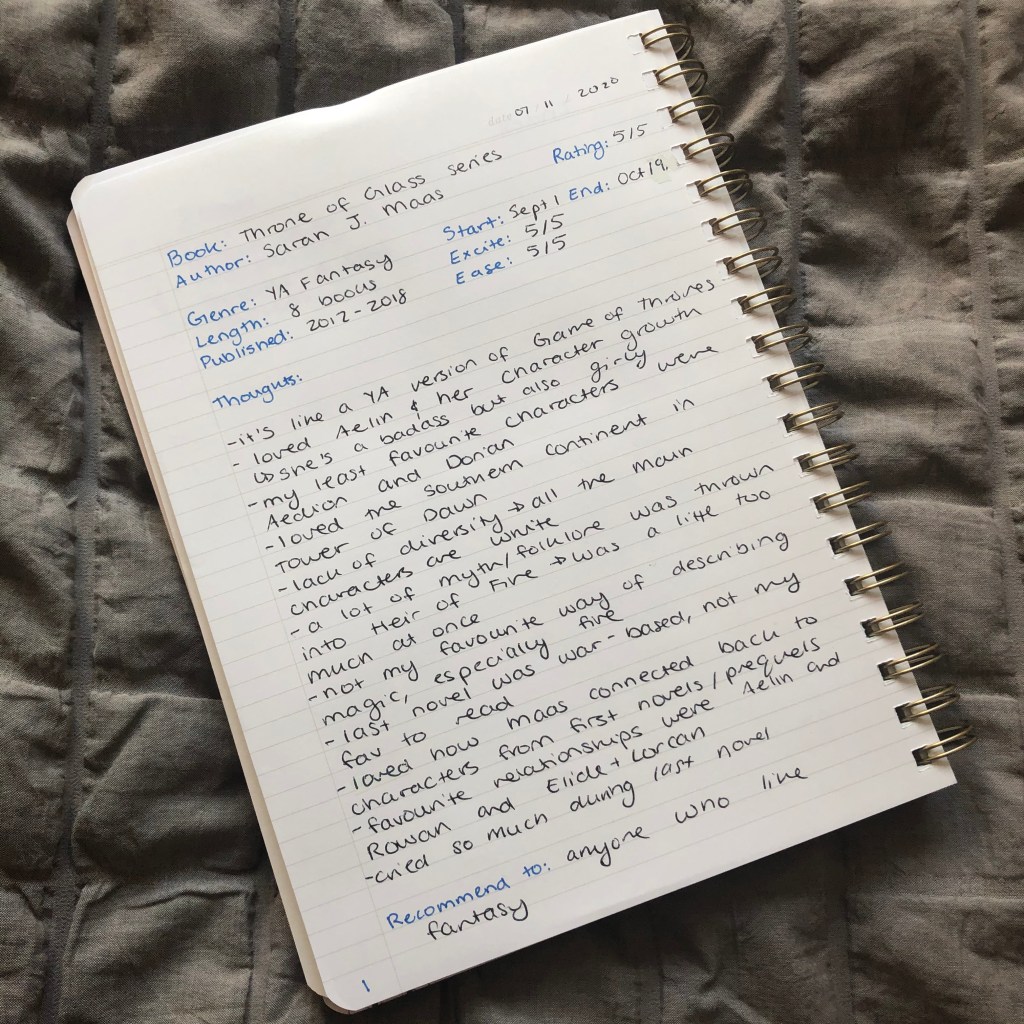 date 07 / 11 / 2020
Book: Throne of Glass series Rating: 5/5
Author: Sarah J. Maas
Genre: YA Fantasy Start: Sept 1 End: Oct 19,
Length: 8 books Excite: 5/5
Published: 2012-2018 Ease: 5/5
Thoughts:
-it's like a YA version of Game of Thrones
- loved Aelin & her character growth
↳ she's a badass but also girly
-my least favourite characters were
Aedion and Dorian
-loved the southern continent in
Tower of Dawn
-lack of diversity → all the main
characters are white
- a lot of myth/folklore was thrown
into Heir of Fire → was a little too
much at once
-not my favourite way of describing
magic, especially fire
-last novel was war-based, not my
fav to read
-loved how Maas connected back to
characters from first novels/prequels
-favourite relationships were Aelin and
Rowan and Elide + Lorcan
-cried so much during last novel
Recommend to: anyone who like
fantasy
1